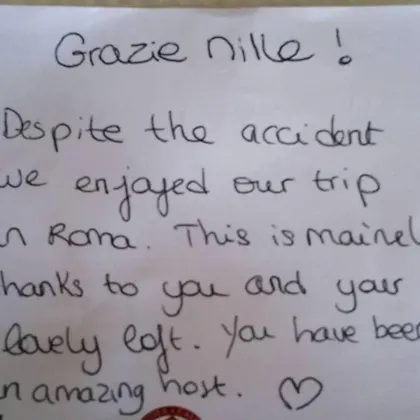 Grazie nille !
Despite the accident
we enjoyed our trip
in Roma. This is mainel
hanks to you and your
lovely loft. You have been
n amazing host. ♡